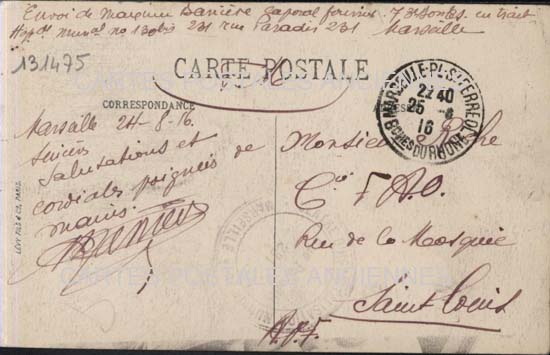 Envoi de Maximin Barrière Caporal fourrier 7 3e Bontes en trait
Hopal munal no 130bis 231 rue Paradis 231 Marseille
131475
CARTE POSTALE
CORRESPONDANCE
MARSEILLE-PL-ST-FERREOL
22 40
25 - 8
16
BCHES DU RHONE
Marseille 24-8-16.
Sincères
Salutations et
cordiales poignées de
mains.
Monsieur
Cie F.A.O.
Rue de la Mosquée
Saint Louis
A.O.F.
LÉVY FILS & CIE, PARIS
CARTES POSTALES ANCIENNES